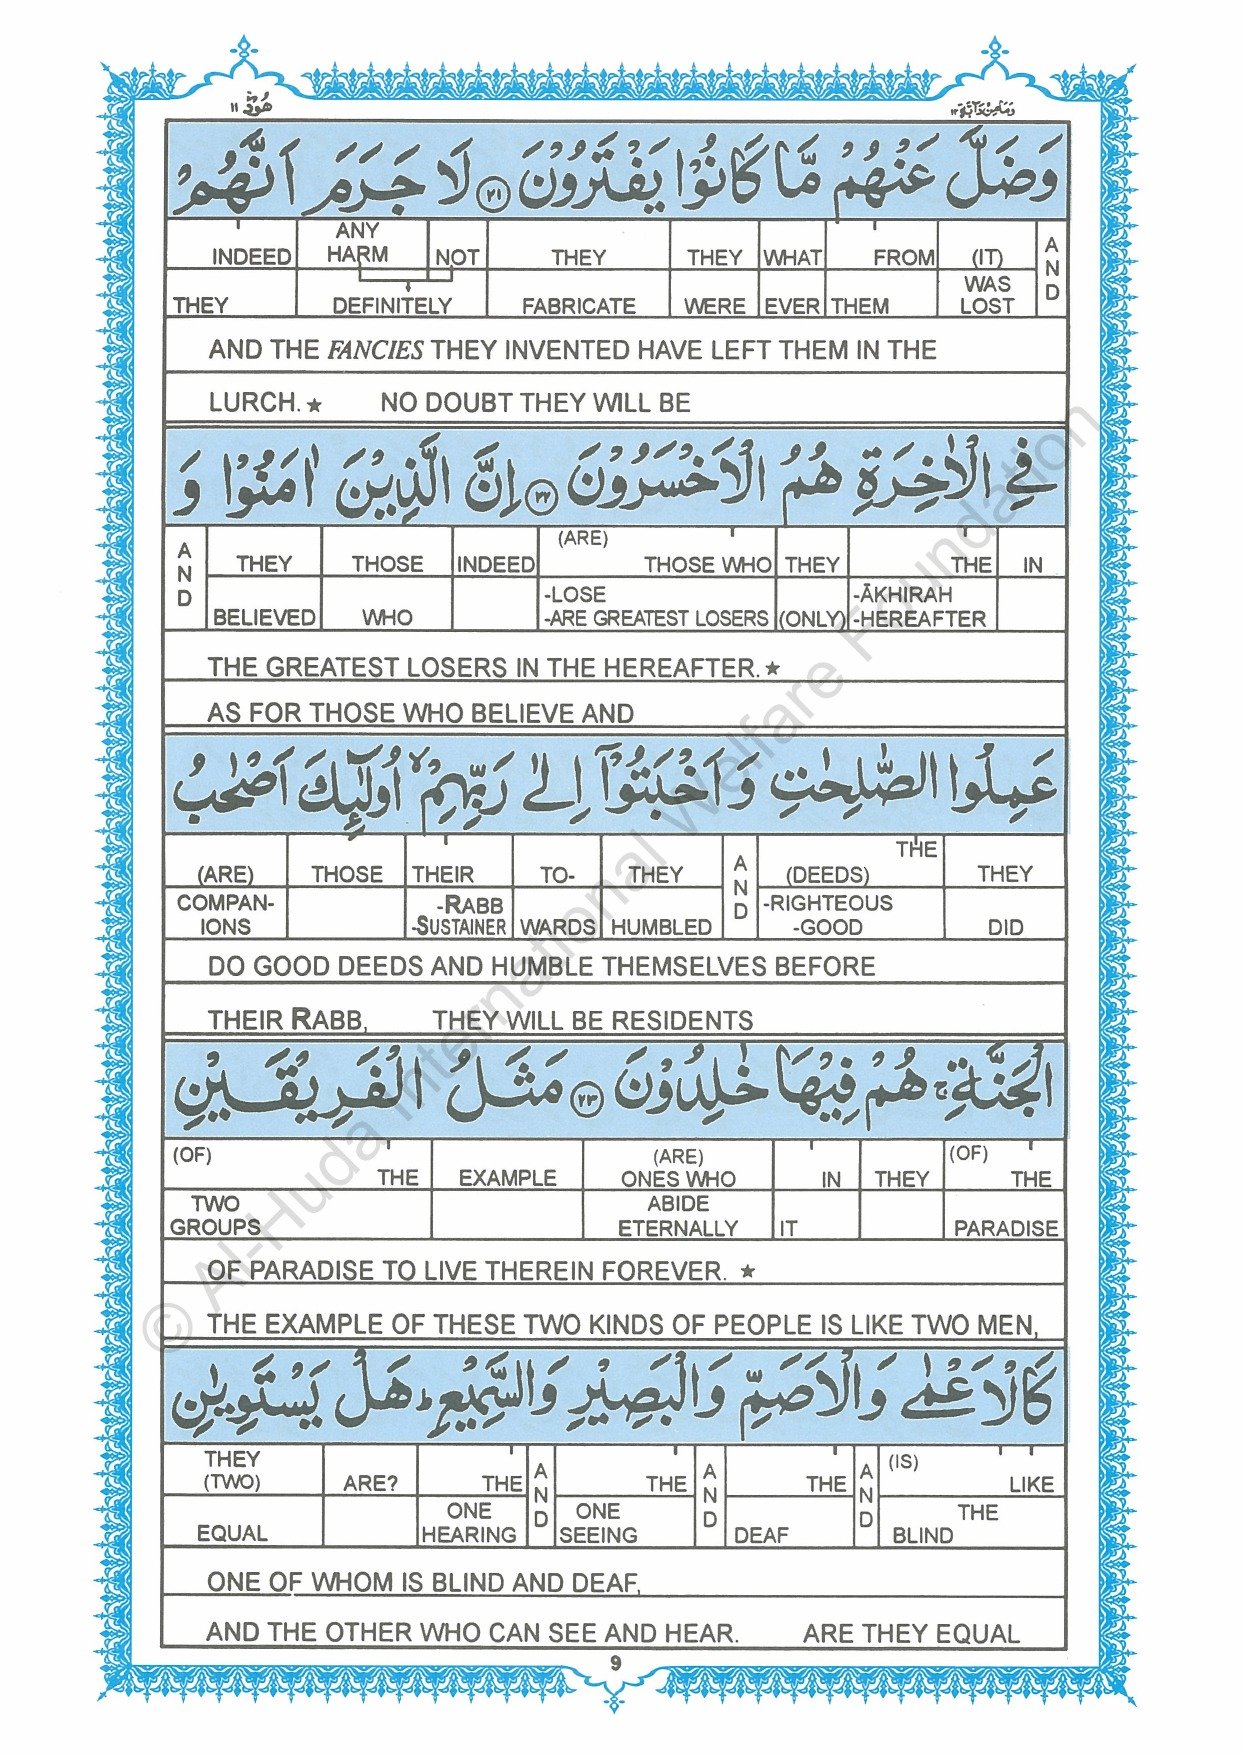 وَمَا مِنْ دَآبَّةٍ ١٢
هُوْد ١١
وَضَلَّ عَنْهُمْ مَّا كَانُوْا يَفْتَرُوْنَ ﴿٢١﴾ لَا جَرَمَ اَنَّهُمْ
INDEED ANY HARM NOT THEY THEY WHAT FROM (IT) AND
THEY DEFINITELY FABRICATE WERE EVER THEM WAS LOST
AND THE FANCIES THEY INVENTED HAVE LEFT THEM IN THE
LURCH.★ NO DOUBT THEY WILL BE
فِي الْاٰخِرَةِ هُمُ الْاَخْسَرُوْنَ ﴿٢٢﴾ اِنَّ الَّذِيْنَ اٰمَنُوْا وَ
AND THEY THOSE INDEED (ARE) THOSE WHO THEY THE IN
BELIEVED WHO -LOSE -ARE GREATEST LOSERS (ONLY) -ĀKHIRAH -HEREAFTER
THE GREATEST LOSERS IN THE HEREAFTER.★
AS FOR THOSE WHO BELIEVE AND
عَمِلُوا الصّٰلِحٰتِ وَاَخْبَتُوْٓا اِلٰى رَبِّهِمْ ۙ اُولٰٓئِكَ اَصْحٰبُ
(ARE) THOSE THEIR TO- THEY AND THE (DEEDS) THEY
COMPAN- IONS -RABB -SUSTAINER WARDS HUMBLED -RIGHTEOUS -GOOD DID
DO GOOD DEEDS AND HUMBLE THEMSELVES BEFORE
THEIR RABB, THEY WILL BE RESIDENTS
الْجَنَّةِ ۚ هُمْ فِيْهَا خٰلِدُوْنَ ﴿٢٣﴾ مَثَلُ الْفَرِيْقَيْنِ
(OF) THE EXAMPLE (ARE) ONES WHO IN THEY (OF) THE
TWO GROUPS ABIDE ETERNALLY IT PARADISE
OF PARADISE TO LIVE THEREIN FOREVER. ★
THE EXAMPLE OF THESE TWO KINDS OF PEOPLE IS LIKE TWO MEN,
كَالْاَعْمٰى وَالْاَصَمِّ وَالْبَصِيْرِ وَالسَّمِيْعِ ؕ هَلْ يَسْتَوِيٰنِ
THEY (TWO) ARE? THE AND THE AND THE AND (IS) LIKE
EQUAL ONE HEARING ONE SEEING DEAF THE BLIND
ONE OF WHOM IS BLIND AND DEAF,
AND THE OTHER WHO CAN SEE AND HEAR. ARE THEY EQUAL
9
© Al-Huda International Welfare Foundation